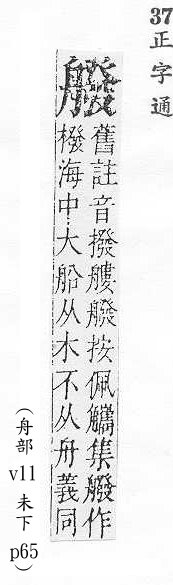 37 正字通
𦪑
舊註音撥艛𦪑按佩觿集𦪑作
橃海中大船从木不从舟義同
(舟部 v11 未下 p65)